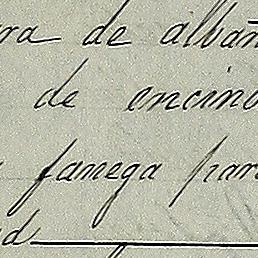 ra de albañ
de encino
fanega para
d